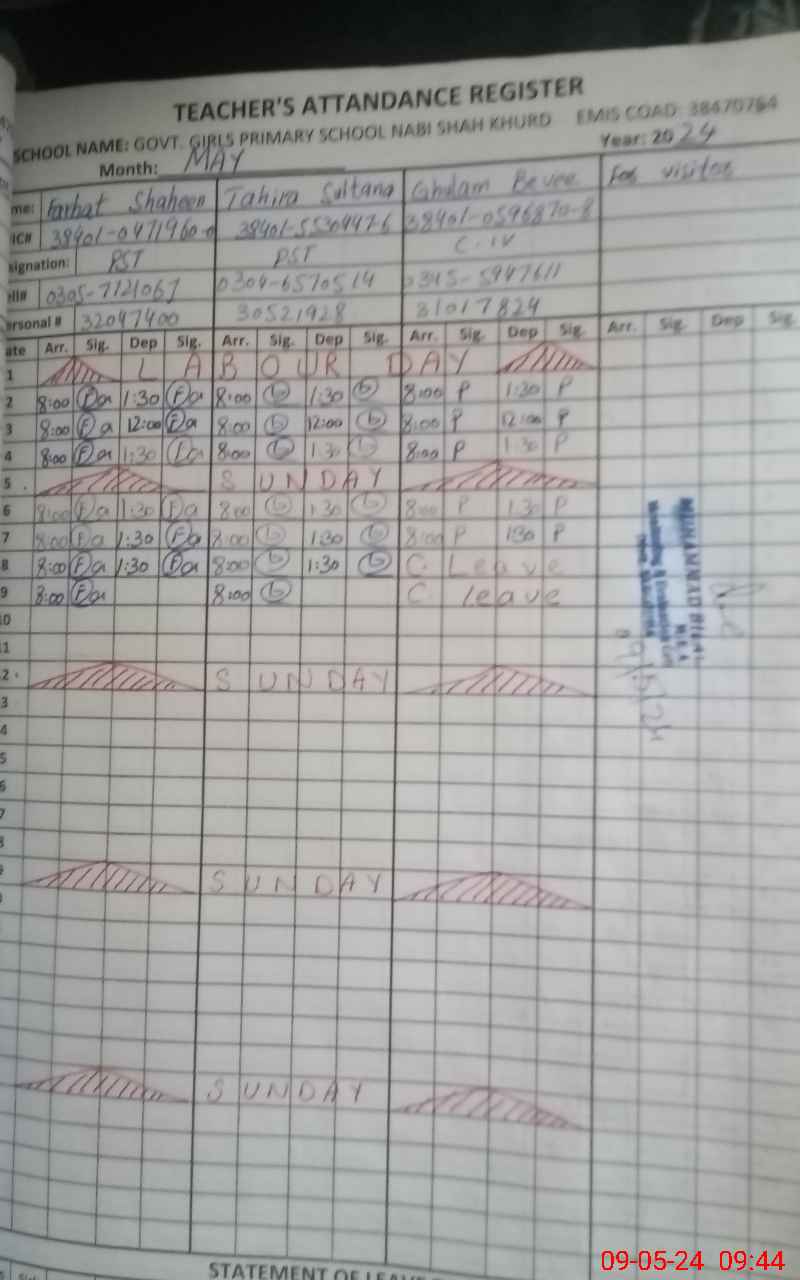 TEACHER'S ATTANDANCE REGISTER
SCHOOL NAME: GOVT. GIRLS PRIMARY SCHOOL NABI SHAH KHURD EMIS COAD: 38470764
Month: MAY Year: 2024
me: Farhat Shaheen Tahira Sultana Ghulam Bevee For visitor
IC# 38401-0471960-0 38401-5530447-6 38401-0596870-8
signation: PST PST C.IV
ell# 0305-7121067 0304-6570514 0345-5947611
ersonal # 32047400 30521928 31017824
ate Arr. Sig. Dep Sig. Arr. Sig. Dep Sig. Arr. Sig. Dep Sig. Arr. Sig. Dep Sig.
1 LABOUR DAY
2 8:00 Fa 1:30 Fa 8:00 1:30 8:00 P 1:30 P
3 8:00 Fa 12:00 Fa 8:00 12:00 8:00 P 12:00 P
4 8:00 Fa 1:30 Fa 8:00 1:30 8:00 P 1:30 P
5 SUNDAY
6 8:00 Fa 1:30 Fa 8:00 1:30 8:00 P 1:30 P
7 8:00 Fa 1:30 Fa 8:00 1:30 8:00 P 1:30 P
8 8:00 Fa 1:30 Fa 8:00 1:30 C. Leave
9 8:00 Fa 8:00 C leave
0
1
2 SUNDAY
3
4
5
6
7
8
9 SUNDAY
SUNDAY
MUHAMMAD BILAL
M.E.A
9/5/24
STATEMENT OF LEAVE
09-05-24 09:44